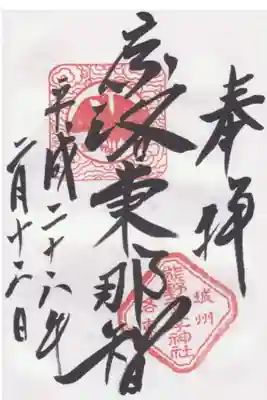 奉拝
京洛東那智
平成二十六年
二月十六日
城州
熊野
子神社